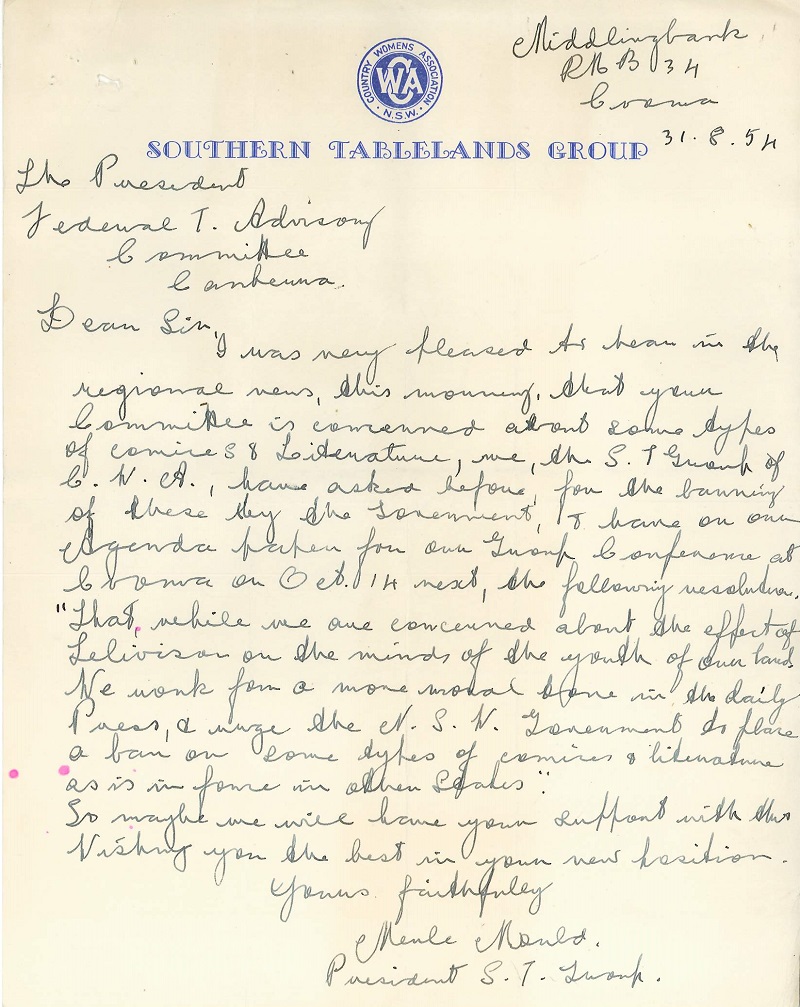 Middlingbank
RMB 34
Cooma
COUNTRY WOMENS ASSOCIATION
CWA
N.S.W.
31.8.54
SOUTHERN TABLELANDS GROUP
The President
Federal T. Advisory
Committee
Canberra.
Dear Sir,
I was very pleased to hear in the
regional news, this morning, that your
Committee is concerned about some types
of comics & Literature, we, the S. T Group of
C. W. A., have asked before, for the banning
of these by the Goverment, & have on our
Agenda paper for our Group Conference at
Cooma on Oct. 14 next, the following resolution.
"That, while we are concerned about the effect of
Telivison on the minds of the youth of our land.
We work for a more moral tone in the daily
Press, & urge the N. S. W. Goverment to place
a ban on some types of comics & literature
as is in force in other States".
So maybe we will have your support with this
Wishing you the best in your new position.
Yours faithfulley
Merle Mould.
President S. T. Group.